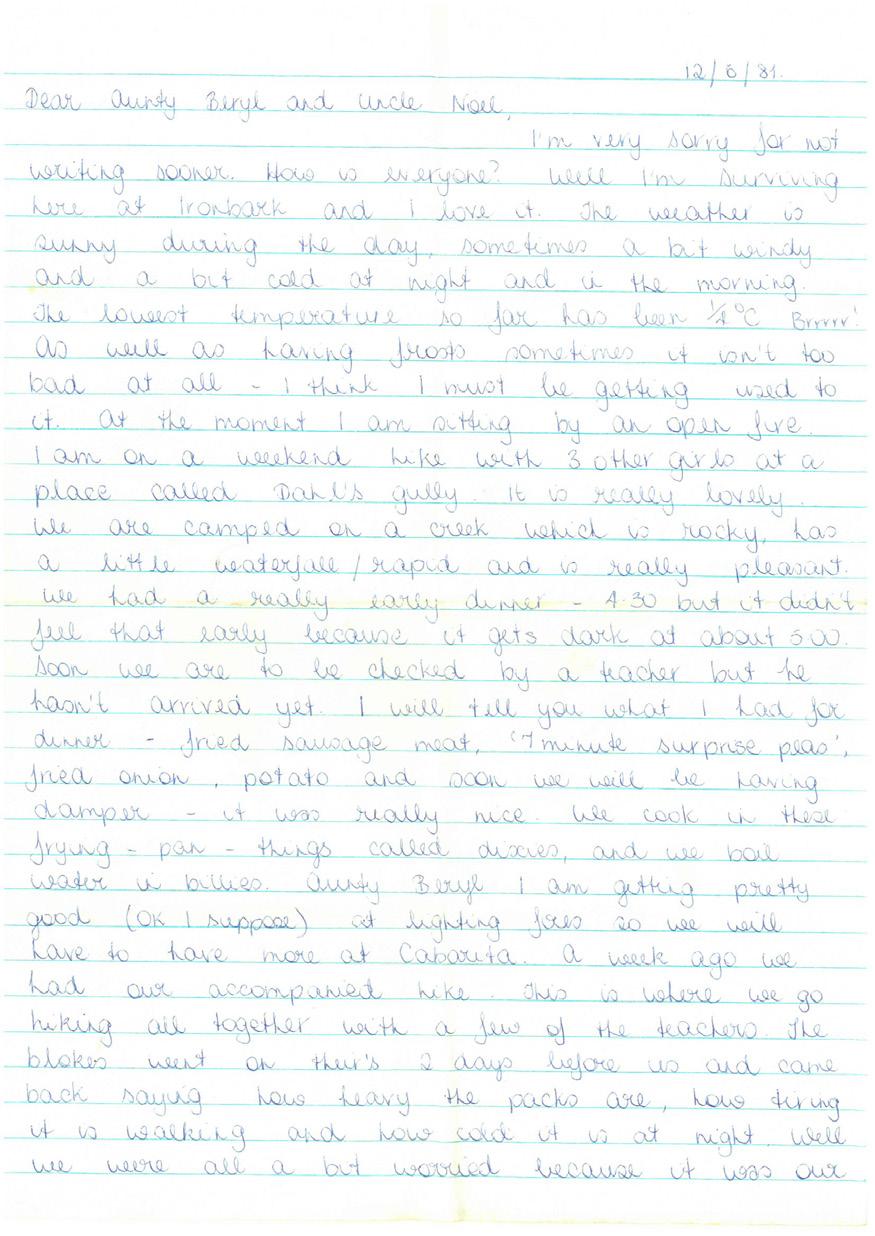 12/6/81.
Dear Aunty Beryl and Uncle Noel,
I'm very sorry for not
writing sooner. How is everyone? Well I'm surviving
here at Ironbark and I love it. The weather is
sunny during the day, sometimes a bit windy
and a bit cold at night and in the morning.
The lowest temperature so far has been ½°C Brrrrr!
As well as having frosts sometimes it isn't too
bad at all - I think I must be getting used to
it. At the moment I am sitting by an open fire.
I am on a weekend hike with 3 other girls at a
place called Dahl's gully. It is really lovely.
We are camped on a creek which is rocky, has
a little waterfall/rapid and is really pleasant.
We had a really early dinner - 4.30 but it didn't
feel that early because it gets dark at about 5.00.
Soon we are to be checked by a teacher but he
hasn't arrived yet. I will tell you what I had for
dinner - fried sausage meat, '7 minute surprise peas',
fried onion, potato and soon we will be having
damper - it was really nice. We cook in these
frying-pan-things called dixies, and we boil
water in billies. Aunty Beryl I am getting pretty
good (OK I suppose) at lighting fires so we will
have to have more at Cabarita. A week ago we
had our accompanied hike. This is where we go
hiking all together with a few of the teachers. The
blokes went on their's 2 days before us and came
back saying how heavy the packs are, how tiring
it is walking and how cold it is at night. Well
we were all a bit worried because it was our